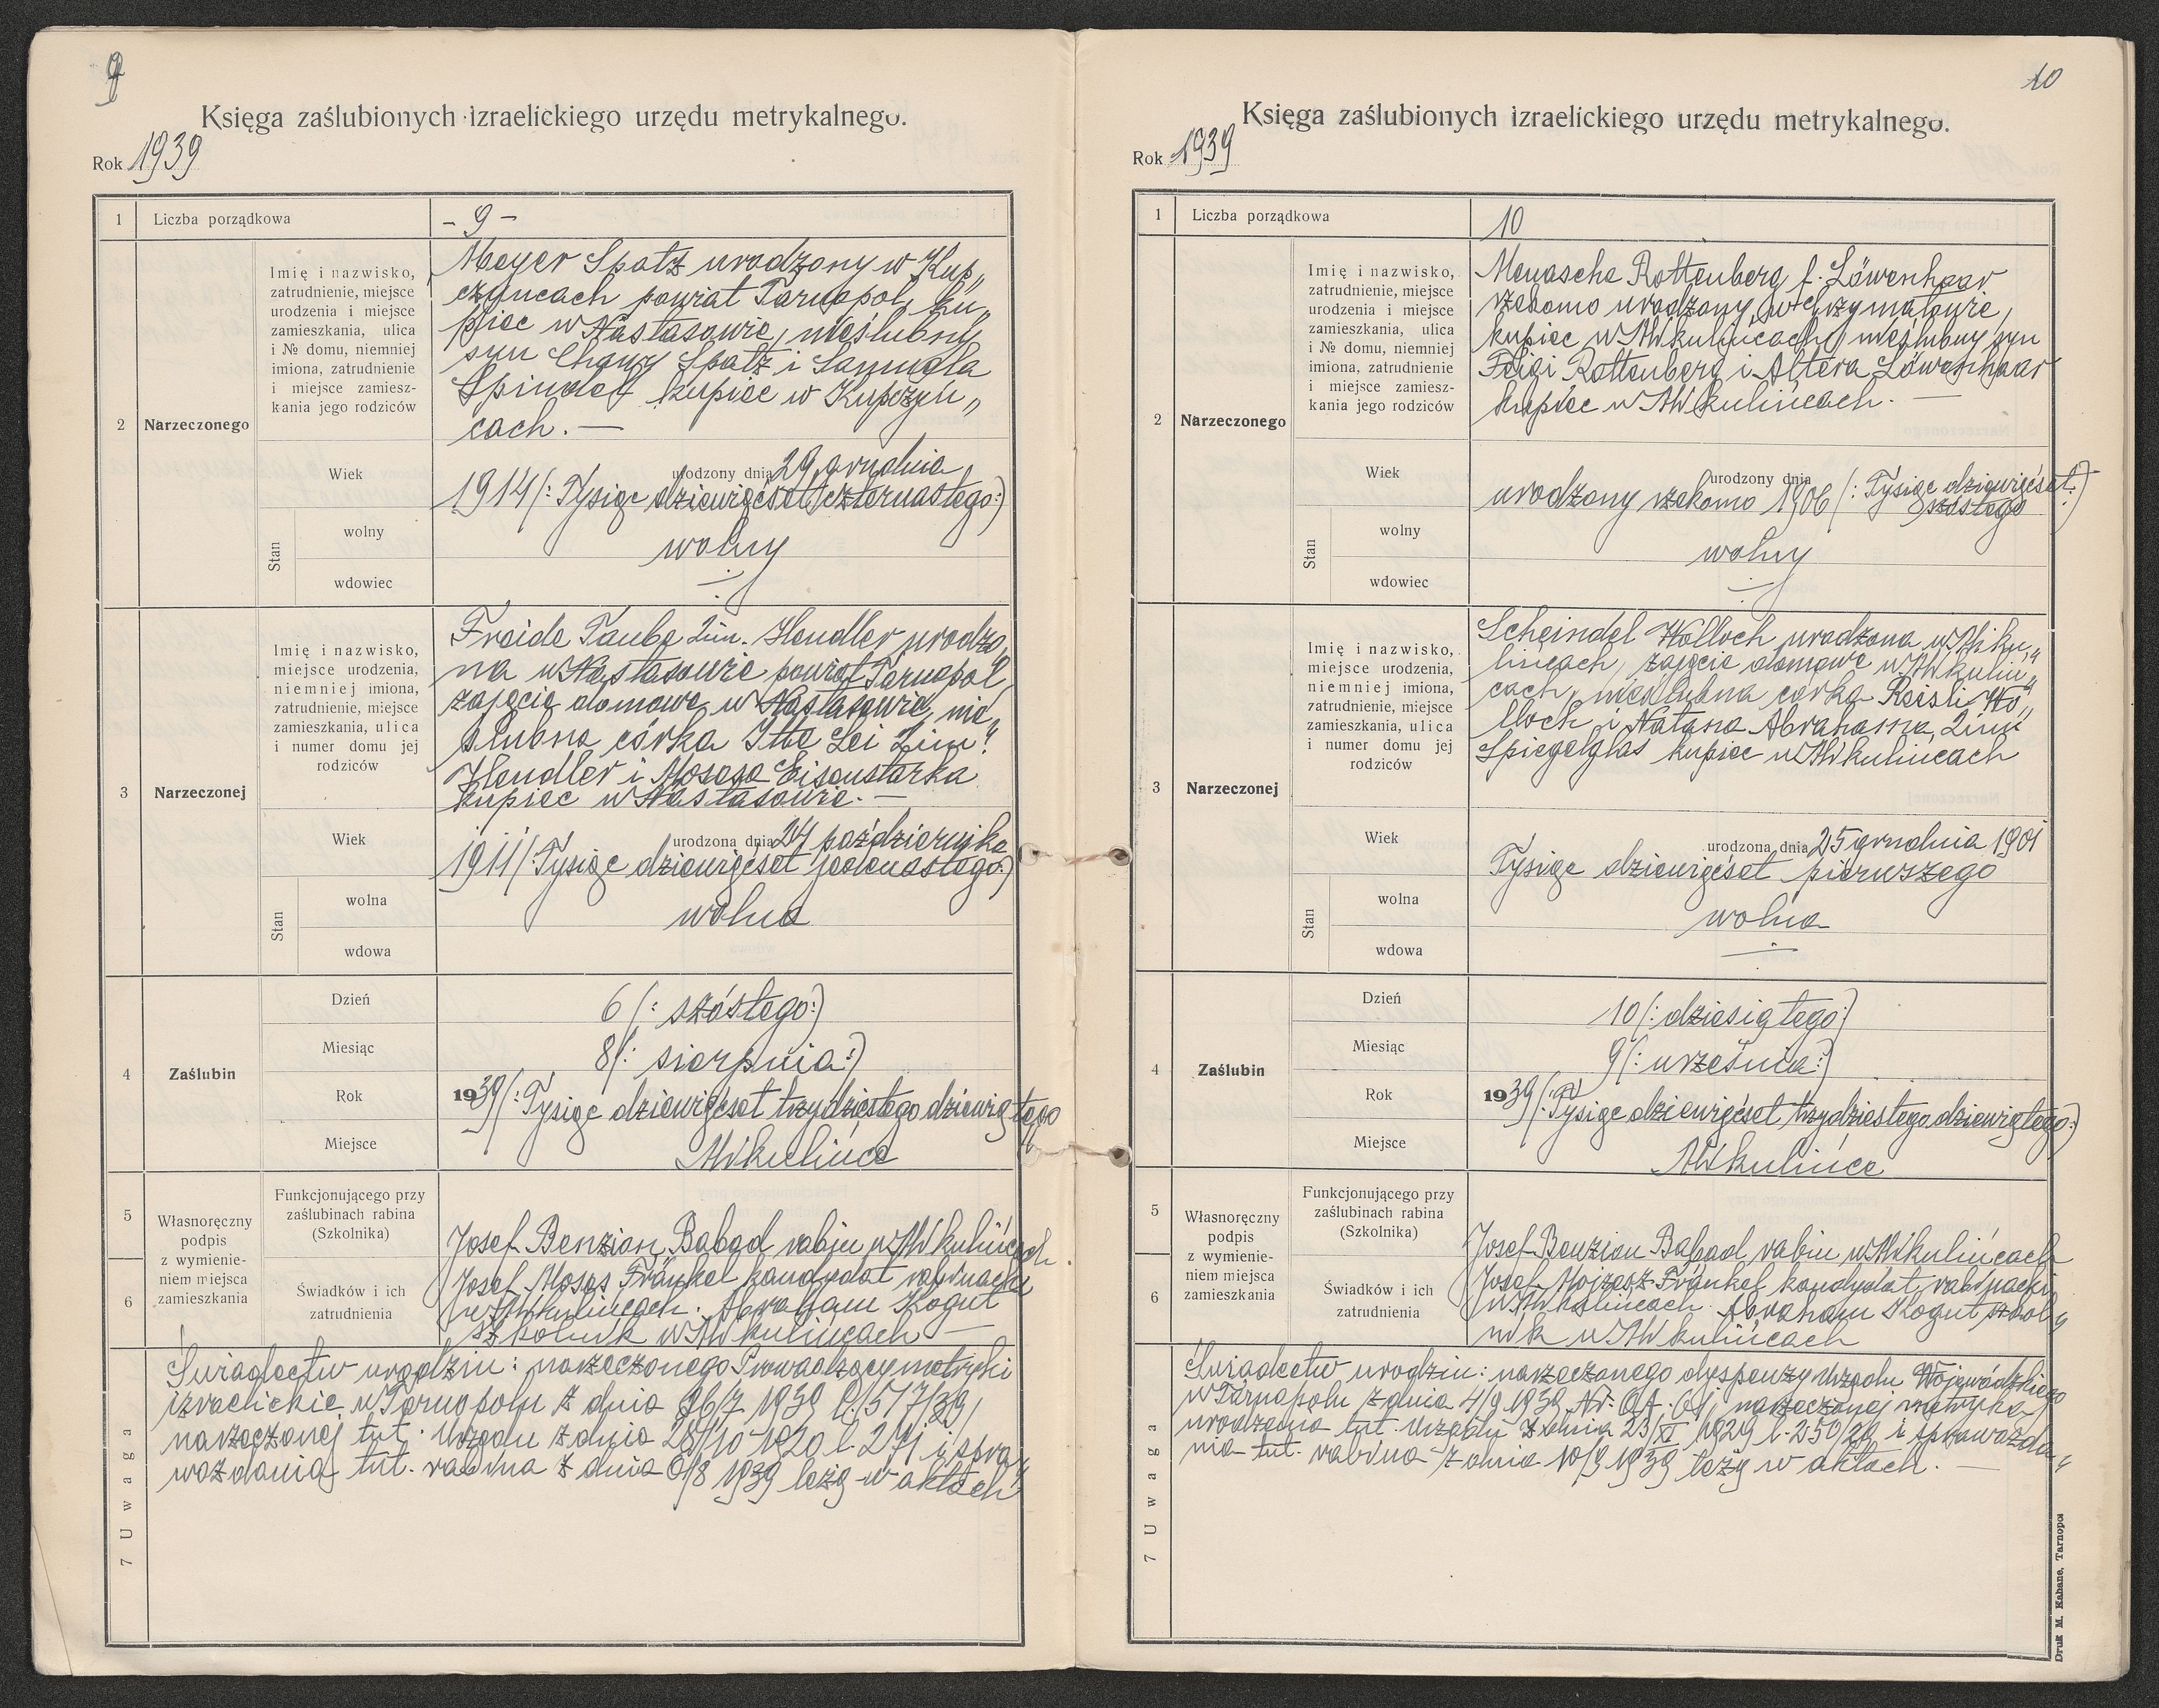 9
Księga zaślubionych izraelickiego urzędu metrykalnego.
Rok 1939
1 Liczba porządkowa - 9 -
2 Narzeczonego
Imię i nazwisko,
zatrudnienie, miejsce
urodzenia i miejsce
zamieszkania, ulica
i № domu, niemniej
imiona, zatrudnienie
i miejsce zamiesz-
kania jego rodziców
Meyer Spatz urodzony w Kup„
czyńcach powiat Tarnopol, ku„
piec w Nastasowie, nieślubny
syn Chany Spatz i Samuela
Spindel kupiec w Kupczyń„
cach. —
Wiek
urodzony dnia 29 grudnia
1914 (: Tysiąc dziewięćset czternastego:)
Stan
wolny
wolny
wdowiec
3 Narzeczonej
Imię i nazwisko,
miejsce urodzenia,
niemniej imiona,
zatrudnienie, miejsce
zamieszkania, ulica
i numer domu jej
rodziców
Freide Taube 2im. Hendler urodzo„
na w Nastasowie powiat Tarnopol
zajęcie domowe w Nastasowie, nie„
ślubna córka Itte Lei 2im.
Hendler i Mosesa Eisenstarka
kupiec w Nastasowie. —
Wiek
urodzona dnia 24 października
1911 (: Tysiąc dziewięćset jedenastego:)
Stan
wolna
wolna
wdowa
4 Zaślubin
Dzień 6 (: szóstego:)
Miesiąc 8 (: sierpnia:)
Rok 1939 (: Tysiąc dziewięćset trzydziestego dziewiątego
Miejsce Mikulińce
5
6
Własnoręczny
podpis
z wymienie-
niem miejsca
zamieszkania
Funkcjonującego przy
zaślubinach rabina
(Szkolnika)
Świadków i ich
zatrudnienia
Josef Benzion Babad rabin w Mikulińcach.
Josef Moses Fränkel kandydat rabinacki
w Mikulińcach. Abraham Kogut
szkolnik w Mikulińcach —
7 Uwaga
Świadectw urodzin: narzeczonego Prowadzący metryki
izraelickie w Tarnopolu z dnia 26/7 1939 l. 517/39,
narzeczonej tut. Urzędu z dnia 28/10 1920 l. 271 i spra„
wozdania tut. rabina z dnia 6/8 1939 leżą w aktach
10
Księga zaślubionych izraelickiego urzędu metrykalnego.
Rok 1939
1 Liczba porządkowa 10
2 Narzeczonego
Imię i nazwisko,
zatrudnienie, miejsce
urodzenia i miejsce
zamieszkania, ulica
i № domu, niemniej
imiona, zatrudnienie
i miejsce zamiesz-
kania jego rodziców
Menasche Rottenberg f. Löwenhaar
rzekomo urodzony w Grzymałowie,
kupiec w Mikulińcach, nieślubny syn
Feigi Rottenberg i Altera Löwenhaar
kupiec w Mikulińcach. —
Wiek
urodzony dnia
urodzony rzekomo 1906 (: Tysiąc dziewięćset
szóstego:)
Stan
wolny
wolny
wdowiec
3 Narzeczonej
Imię i nazwisko,
miejsce urodzenia,
niemniej imiona,
zatrudnienie, miejsce
zamieszkania, ulica
i numer domu jej
rodziców
Scheindel Wolloch urodzona w Miku„
lińcach, zajęcie domowe w Mikuliń„
cach, nieślubna córka Reisli Wo„
lloch i Natana Abrahama 2im
Spiegelglas kupiec w Mikulińcach
Wiek
urodzona dnia 25 grudnia 1901
Tysiąc dziewięćset pierwszego
Stan
wolna
wolna
wdowa
4 Zaślubin
Dzień 10 (: dziesiątego:)
Miesiąc 9 (: września:)
Rok 1939 (: Tysiąc dziewięćset trzydziestego dziewiątego:)
Miejsce Mikulińce
5
6
Własnoręczny
podpis
z wymienie-
niem miejsca
zamieszkania
Funkcjonującego przy
zaślubinach rabina
(Szkolnika)
Świadków i ich
zatrudnienia
Josef Benzion Babad rabin w Mikulińcach
Josef Mojżesz Fränkel kandydat rabinacki
w Mikulińcach Abraham Kogut szkol„
nik w Mikulińcach
7 Uwaga
Świadectw urodzin: narzeczonego dyspenzy Urzędu Wojewódzkiego
w Tarnopolu z dnia 4/9 1939 Nr. narzeczonej metryka
urodzenia tut. Urzędu z dnia 23/XI 1929 l. 250/29 i sprawozda„
nia tut. rabina z dnia 10/9 1939 leżą w aktach. —
Druk M. Kahane, Tarnopol